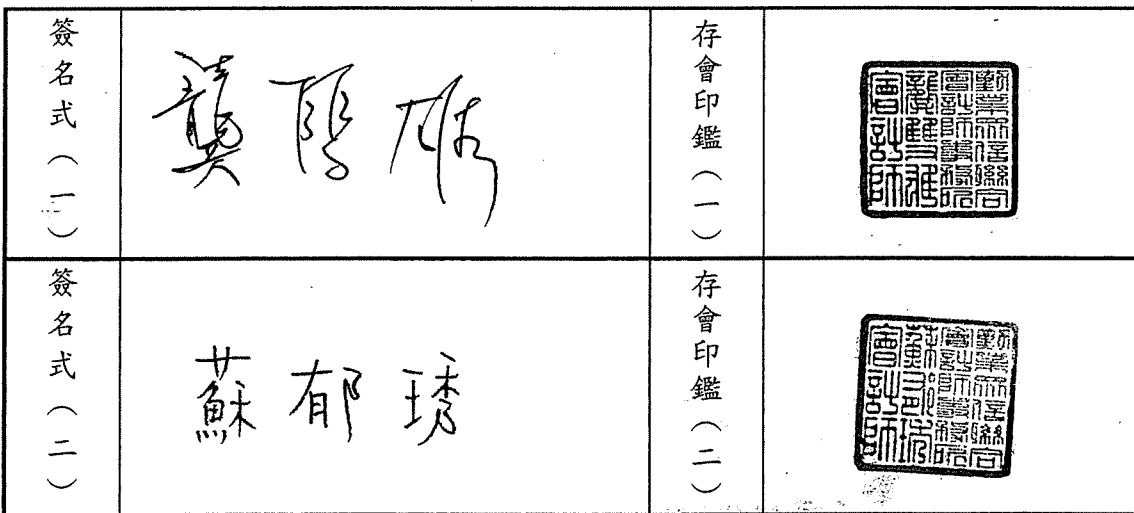 簽名式（一）
龔雙雄
存會印鑑（一）
勤業眾信聯合
會計師事務所
龔雙雄
會計師
簽名式（二）
蘇郁琇
存會印鑑（二）
勤業眾信聯合
會計師事務所
蘇郁琇
會計師